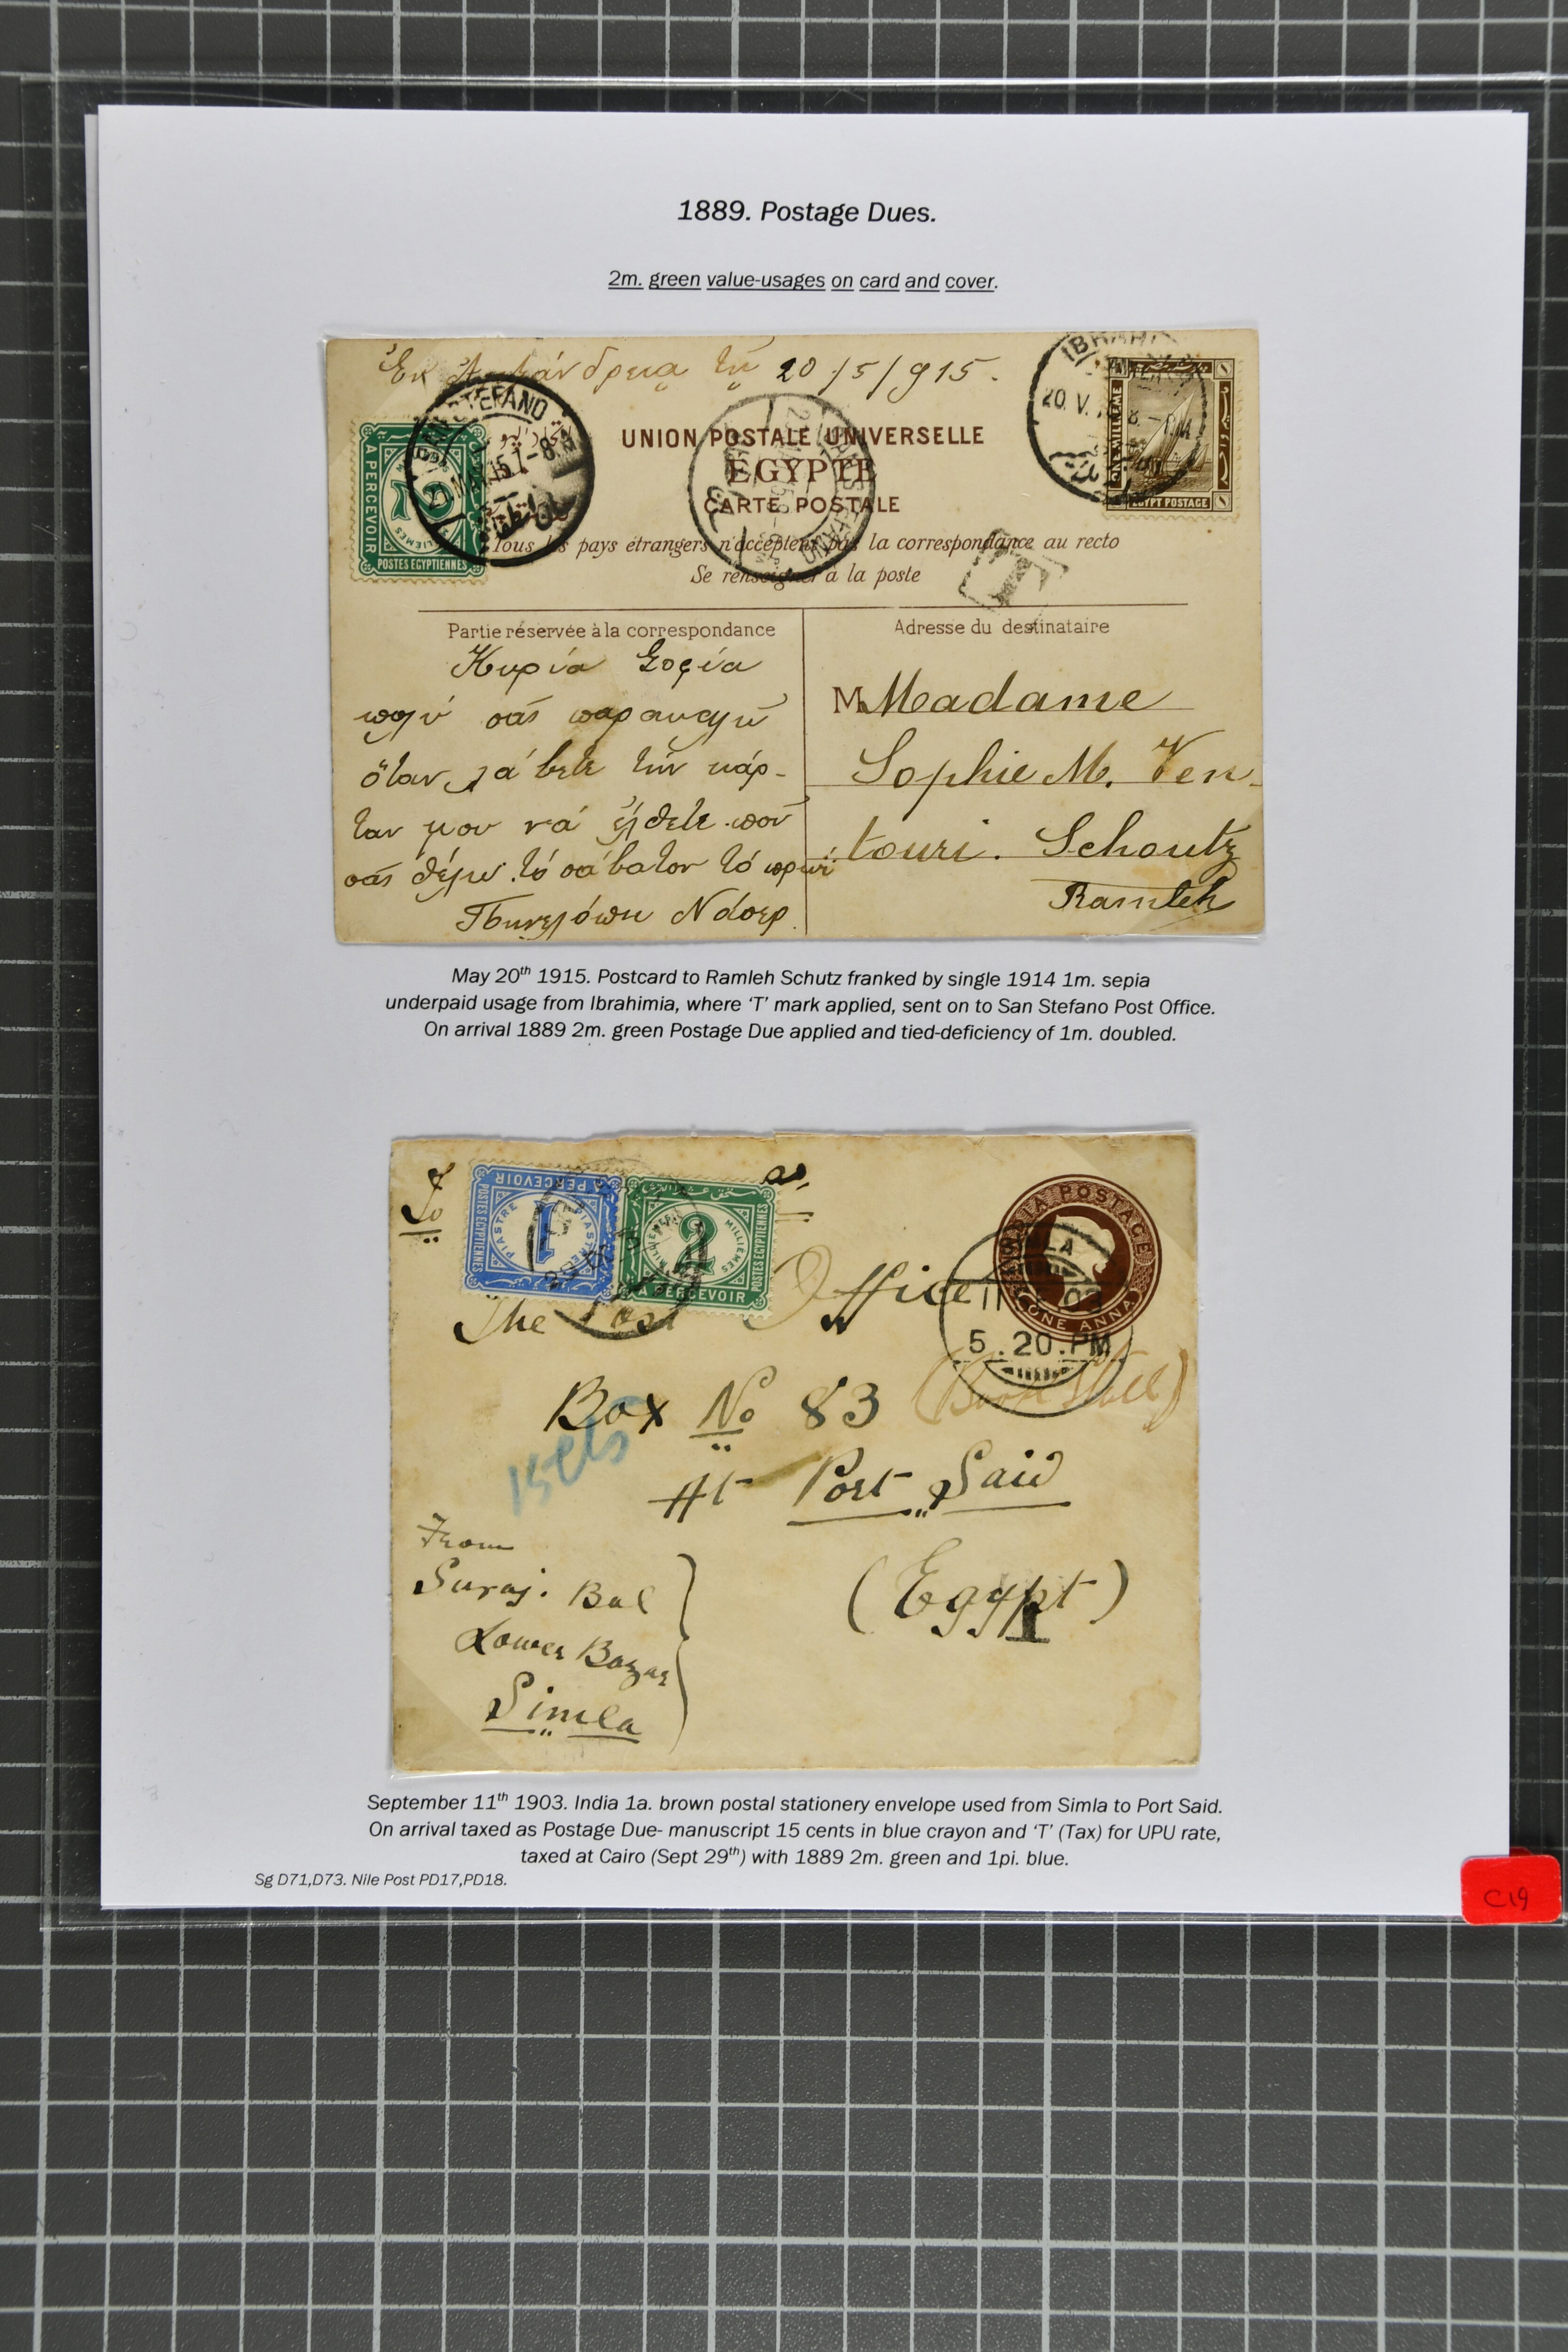 1889. Postage Dues.
2m. green value-usages on card and cover.
20/5/915.
IBRAHI
20. V.
8.-PM
ONE MILLEME
EGYPT POSTAGE
STEFANO
15.7-8
A PERCEVOIR
2
MILLIEMES
POSTES EGYPTIENNES
UNION POSTALE UNIVERSELLE
EGYPTE
CARTE POSTALE
Tous les pays étrangers n'acceptent pas la correspondance au recto
Se renseigner à la poste
T
Partie réservée à la correspondance
Adresse du destinataire
Κυρία Σοφία
πολύ σάς παρακαλώ
όταν λάβετε τήν κάρ-
ταν μου νά έλθετε που
σάς θέλω τό σάβατον τό πρωί
Πηνελόπη
M Madame
Sophie M. Ven-
touri. Schoutz
Ramleh
May 20th 1915. Postcard to Ramleh Schutz franked by single 1914 1m. sepia
underpaid usage from Ibrahimia, where ‘T’ mark applied, sent on to San Stefano Post Office.
On arrival 1889 2m. green Postage Due applied and tied-deficiency of 1m. doubled.
To
A PERCEVOIR
POSTES EGYPTIENNES
PIASTRE
1
PIASTRE
2
MILLIEMES
POSTES EGYPTIENNES
A PERCEVOIR
INDIA POSTAGE
ONE ANNA
LA
11
03
5.20.PM
The Post Office
Box No 83 (Book Stall)
15 cts
At Port Said
(Egypt)
T
From
Suraj. Bal
Lower Bazar
Simla
September 11th 1903. India 1a. brown postal stationery envelope used from Simla to Port Said.
On arrival taxed as Postage Due- manuscript 15 cents in blue crayon and ‘T’ (Tax) for UPU rate,
taxed at Cairo (Sept 29th) with 1889 2m. green and 1pi. blue.
Sg D71,D73. Nile Post PD17,PD18.
C19